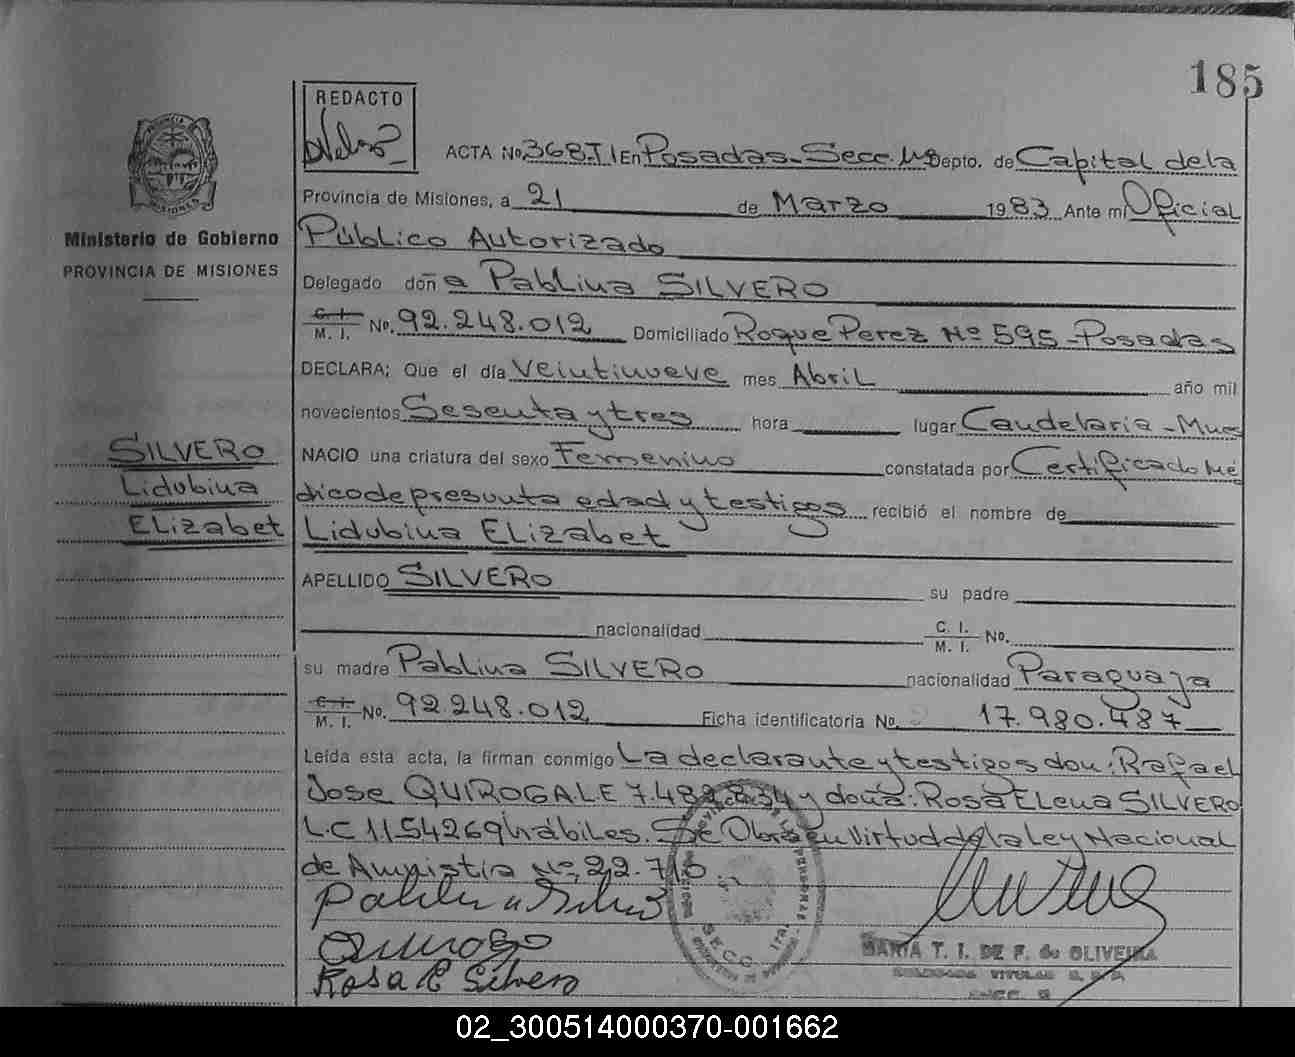 185
REDACTO
ACTA No. 368.T I En Posadas - Secc. Depto. de Capital de la
Provincia de Misiones, a 21 de Marzo 1983 Ante mi Oficial
Ministerio de Gobierno
PROVINCIA DE MISIONES
Público Autorizado
Delegado doña Pablina SILVERO
C. I.
M. I. No. 92.248.012 Domiciliado Roque Perez Nº 595 - Posadas
DECLARA; Que el día Veintinueve mes Abril año mil
novecientos Sesenta y tres hora lugar Candelaria - Mnes
NACIO una criatura del sexo Femenino constatada por Certificado Mé
dico de presunta edad y testigos recibió el nombre de
SILVERO
Lidubina
Elizabet
Lidubina Elizabet
APELLIDO SILVERO su padre
nacionalidad C. I.
M. I. No.
su madre Pablina SILVERO nacionalidad Paraguaya
C. I.
M. I. No. 92.248.012 Ficha identificatoria No. 17.980.487
Leída esta acta, la firman conmigo La declarante y testigos don: Rafael
Jose QUIROGA LE 7.482.834 y doña: Rosa Elena SILVERO
L.C 1154269 hábiles. Se Obra en Virtud de la ley Nacional
de Amnistia Nº 22.
Pablina Silvero
Quiroga
Rosa E Silvero
SECC.
MARIA T. I. DE F. de OLIVEIRA
02_300514000370-001662